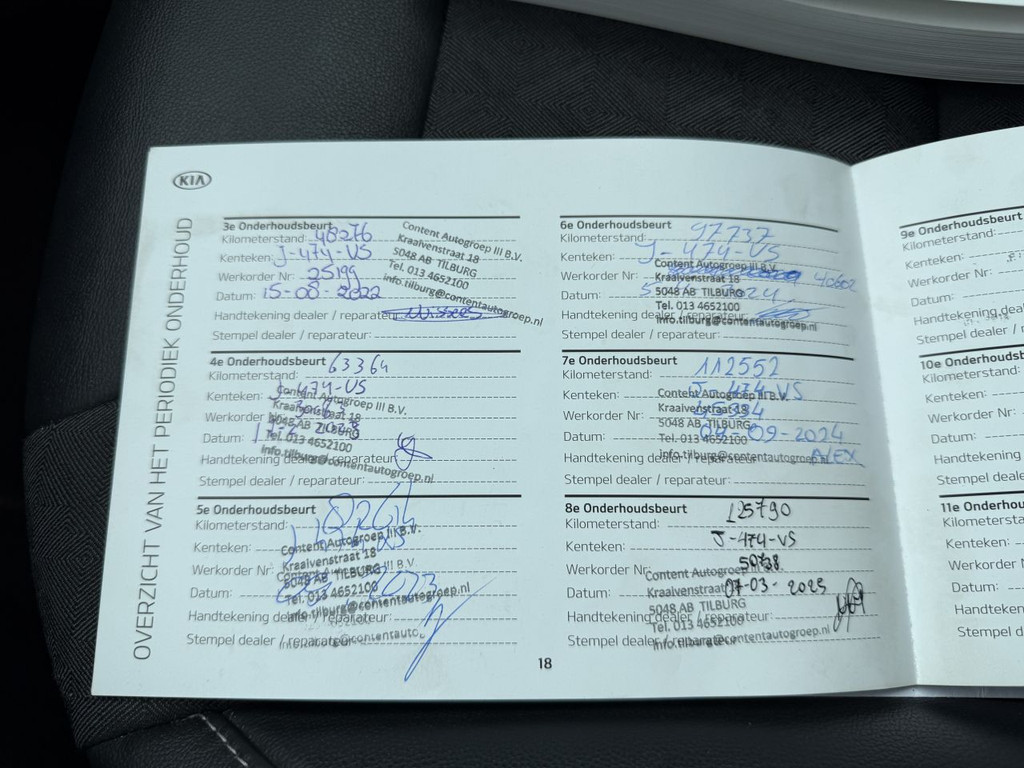 KIA
OVERZICHT VAN HET PERIODIEK ONDERHOUD
3e Onderhoudsbeurt
Kilometerstand: 48276
Kenteken: J-474-VS
Werkorder Nr: 25199
Datum: 15-08-2022
Handtekening dealer / reparateur
Stempel dealer / reparateur:
Content Autogroep III B.V.
Kraalvenstraat 18
5048 AB TILBURG
Tel. 013 4652100
info.tilburg@contentautogroep.nl
4e Onderhoudsbeurt
Kilometerstand: 63364
Kenteken: J-474-VS
Werkorder Nr:
Datum:
Handtekening dealer / reparateur
Stempel dealer / reparateur:
Content Autogroep III B.V.
Kraalvenstraat 18
5048 AB TILBURG
Tel. 013 4652100
info.tilburg@contentautogroep.nl
5e Onderhoudsbeurt
Kilometerstand:
Kenteken:
Werkorder Nr:
Datum:
Handtekening dealer / reparateur:
Stempel dealer / reparateur:
Content Autogroep III B.V.
Kraalvenstraat 18
5048 AB TILBURG
Tel. 013 4652100
info.tilburg@contentautogroep.nl
6e Onderhoudsbeurt
Kilometerstand: 97737
Kenteken: J-474-VS
Werkorder Nr: 40602
Datum:
Handtekening dealer / reparateur:
Stempel dealer / reparateur:
Content Autogroep III B.V.
Kraalvenstraat 18
5048 AB TILBURG
Tel. 013 4652100
info.tilburg@contentautogroep.nl
7e Onderhoudsbeurt
Kilometerstand: 112552
Kenteken: J-474-VS
Werkorder Nr:
Datum: 04-09-2024
Handtekening dealer / reparateur ALEX
Stempel dealer / reparateur:
Content Autogroep III B.V.
Kraalvenstraat 18
5048 AB TILBURG
Tel. 013 4652100
info.tilburg@contentautogroep.nl
8e Onderhoudsbeurt
Kilometerstand: 125790
Kenteken: J-474-VS
Werkorder Nr: 50738
Datum: 07-03-2025
Handtekening dealer / reparateur:
Stempel dealer / reparateur:
Content Autogroep III B.V.
Kraalvenstraat
5048 AB TILBURG
Tel. 013 4652100
info.tilburg@contentautogroep.nl
18
9e Onderhoudsbeurt
Kilometerstand:
Kenteken:
Werkorder Nr:
Datum:
Handtekening
Stempel dealer /
10e Onderhoudsb
Kilometerstand:
Kenteken:
Werkorder Nr:
Datum:
Handtekening
Stempel dealer
11e Onderhouds
Kilometerstand
Kenteken:
Werkorder Nr
Datum:
Handtekening
Stempel d